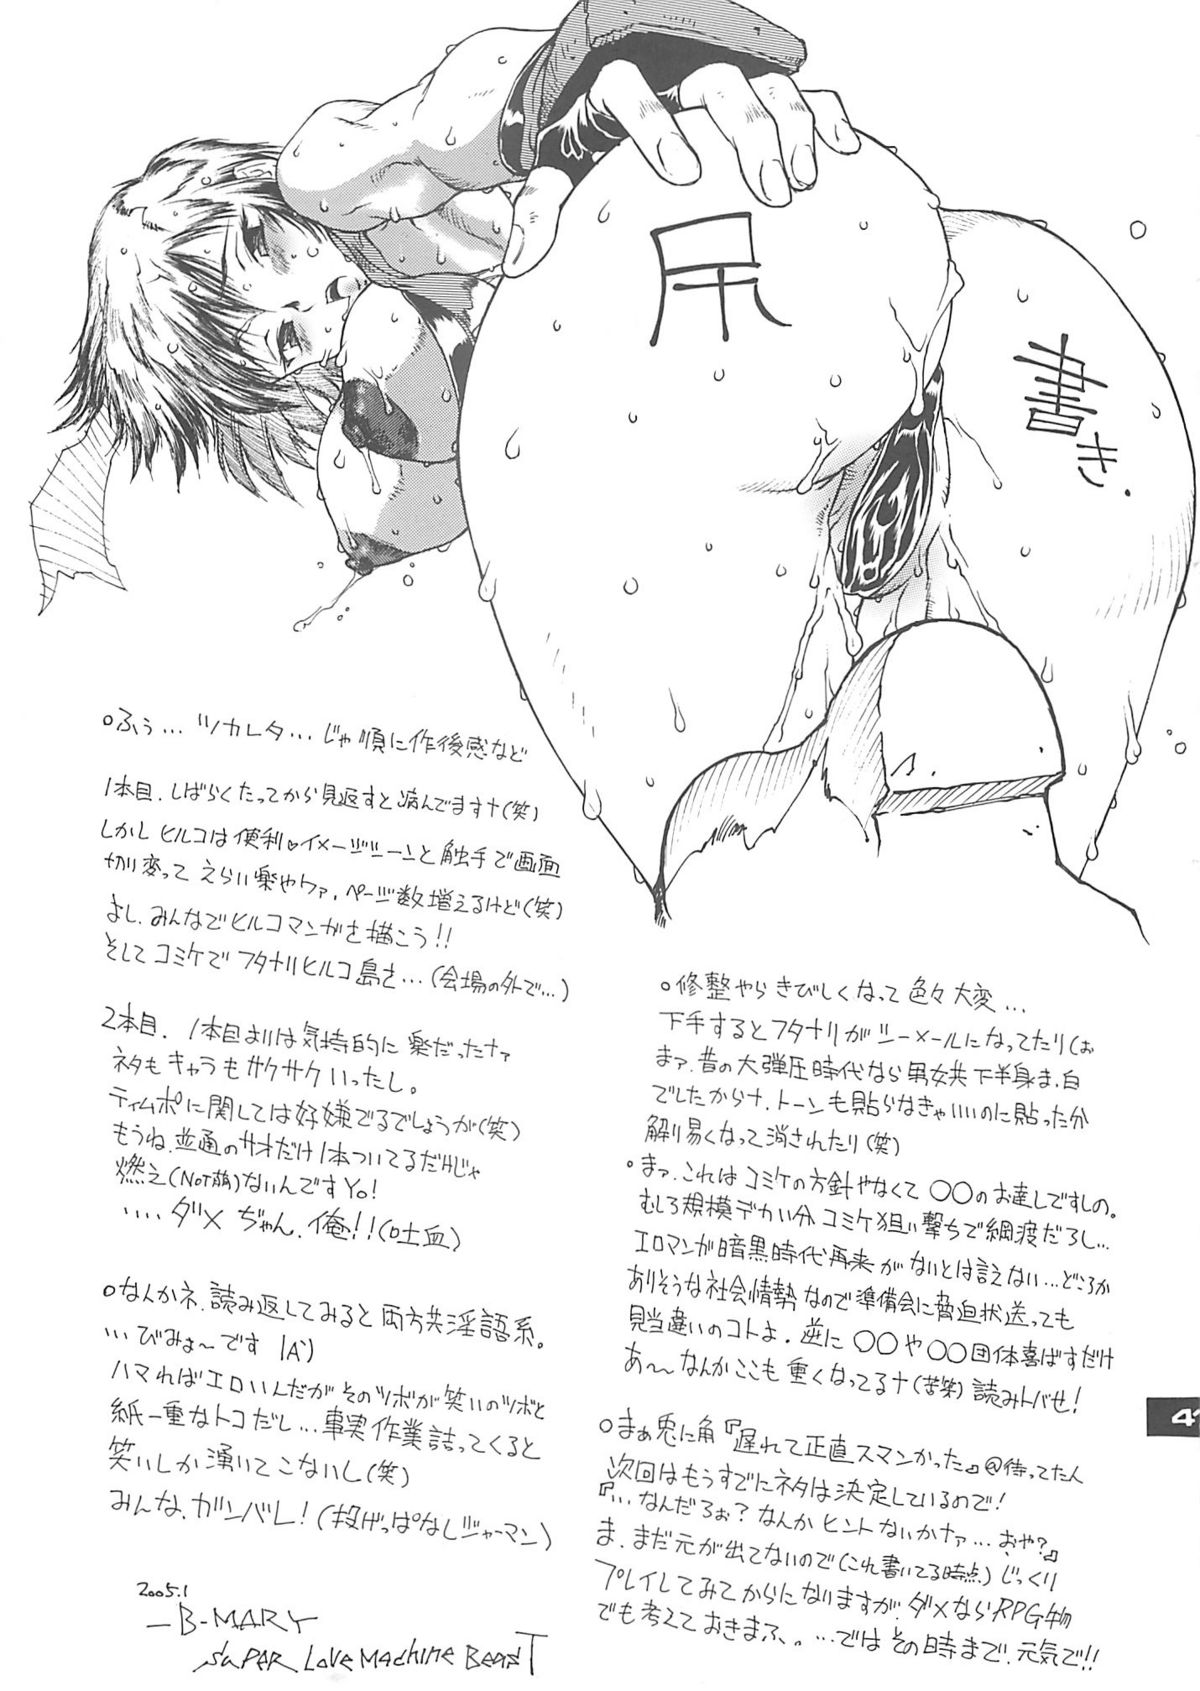 后書き.
○ふぅ…ツカレタ…じゃ順に作後感など
1本目.しばらくたってから見返すと病んでますナ(笑)
しかし ヒルコは便利♡イメージシーンと触手で画面
切り変って えらい楽やワァ,ページ数増えるけど(笑)
よし,みんなでヒルコマンガを描こう!!
そして コミケで フタナリヒルコ島を…(会場の外で…)
2本目. 1本目よりは気持的に楽だったナァ
ネタもキャラもサクサクいったし。
ティムポに関しては好嫌でるでしょうが(笑)
もうね,普通のサオだけ1本ついてるだけじゃ
燃え(NOT萌)ないんですYo!
‥‥ダメぢゃん,俺!!(吐血)
○なんかネ,読み返してみると両方共淫語系。
…びみょ〜です
ハマればエロいんだがそのツボが笑いのツボと
紙一重なトコだし…事実作業詰ってくると
笑いしか湧いてこないし(笑)
みんな,ガンバレ!(投げっぱなしジャーマン)
2005.1
—B-MARY
SUPER LOVE MACHINE BEAST
○修整やら きびしくなって 色々大変…
下手するとフタナリがシーメールになってたり(お
まァ,昔の大弾圧時代なら男女共下半身ま,白
でしたからナ,トーンも貼らなきゃいいのに貼った分
解り易くなって消されたり(笑)
○まァ,これは コミケの方針やなくて ○○のお達しですしの。
むしろ規模デカい分コミケ狙い撃ちで綱渡だろし…
エロマンガ暗黒時代再来がないとは言えない…どころか
ありそうな社会情勢なので準備会に脅迫状送っても
見当違いのコトよ.逆に ○○や○○団体喜ばすだけ
あ〜〜なんかここも重くなってるナ(苦笑)読みトバせ!
○まぁ兎に角『遅れて正直スマンかった』@待ってた人
次回はもうすでにネタは決定しているので!
『…なんだろぉ?なんかヒントないかナァ…おや?』
ま,まだ元が出てないので(これ書いてる時点)じっくり
プレイしてみてからになりますが,ダメならRPG物
でも考えておきまふ。。…ではその時まで,元気で!!
41